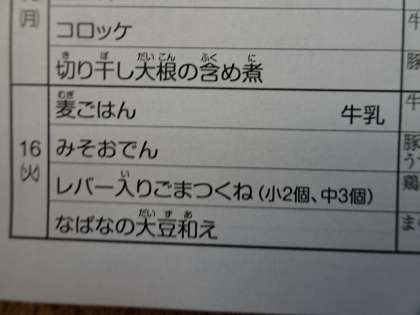 (月)
コロッケ
切り干し大根の含め煮
麦ごはん 牛乳
16
(火)
みそおでん
レバー入りごまつくね(小2個、中3個)
なばなの大豆和え
牛
豚
牛
豚
う
鶏
ま